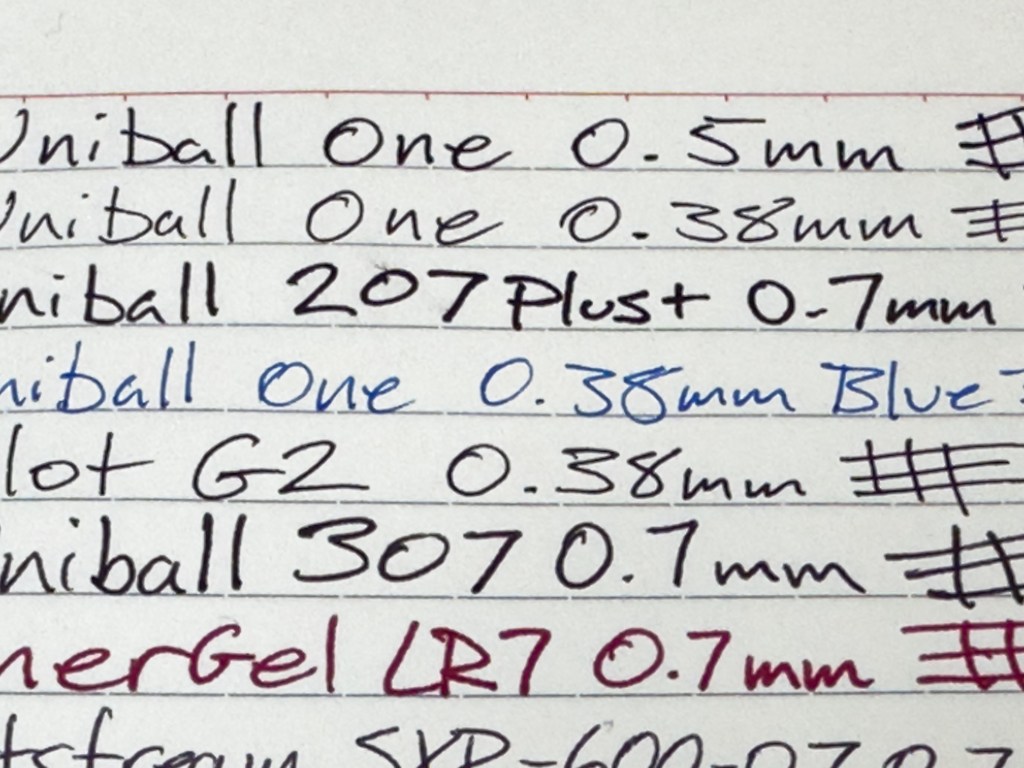 Uniball One 0.5mm
Uniball One 0.38mm
niball 207 Plus+ 0.7mm
niball One 0.38mm Blue
lot G2 0.38mm
niball 307 0.7mm
nerGel LR7 0.7mm
tstream SXR-600-07 0.7